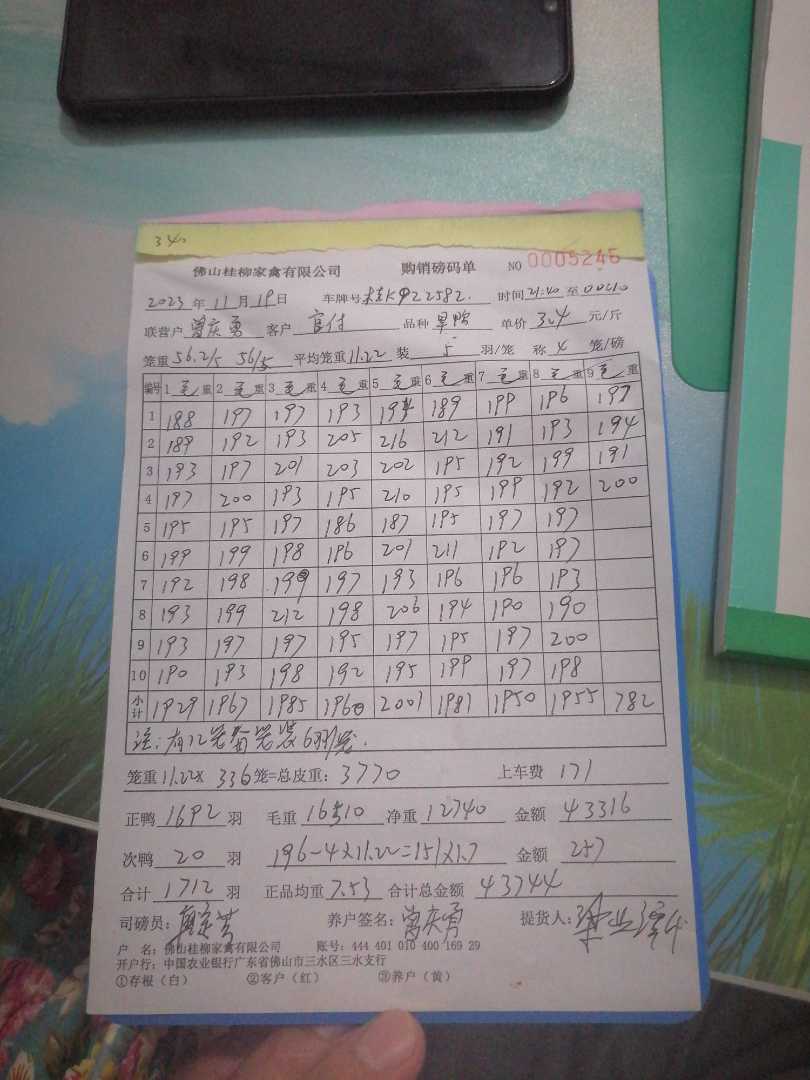 340
佛山桂柳家禽有限公司 购销磅码单 NO 0005246
2023年11月19日 车牌号桂K922582. 时间21:40至00:10
联营户 曾庆勇 客户 官付 品种 旱鸭 单价 3.4 元/斤
笼重 56.2/5 56/5 平均笼重 11.22 装 5 羽/笼 称 4 笼/磅
编号 1 毛重 2 毛重 3 毛重 4 毛重 5 毛重 6 毛重 7 毛重 8 毛重 9 毛重
1 188 197 197 193 189 199 196 197
2 189 192 193 205 216 212 191 193 194
3 193 197 201 203 202 195 192 199 191
4 197 200 193 195 210 195 199 192 200
5 195 195 197 186 187 195 197 197
6 199 199 198 196 201 211 192 197
7 192 198 199 197 193 196 196 193
8 193 199 212 198 206 194 190 190
9 193 197 197 195 197 195 197 200
10 190 193 198 192 195 199 197 198
小计 1929 1967 1985 1960 2001 1981 1950 1955 782
注:有12笼 笼装6羽/笼.
笼重11.22× 336笼=总皮重: 3770 上车费 171
正鸭 1692 羽 毛重 16510 净重 12740 金额 43316
次鸭 20 羽 196-4×11.22=151×1.7 金额 257
合计 1712 羽 正品均重 7.53 合计总金额 43744
司磅员: 养户签名: 曾庆勇 提货人:
户 名: 佛山桂柳家禽有限公司 账号: 444 401 010 400 169 29
开户行: 中国农业银行广东省佛山市三水区三水支行
①存根（白） ②客户（红） ③养户（黄）